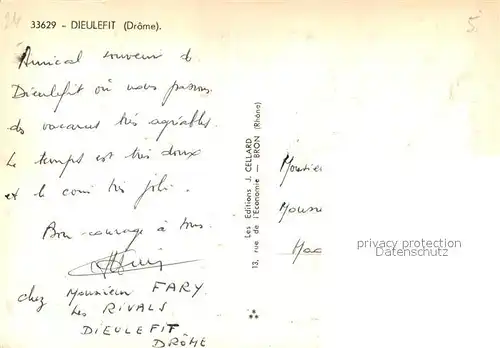 33629 - DIEULEFIT (Drôme).
Amical souvenir de
Dieulefit où nous passons
des vacances très agréables.
Le temps est très doux
et le coin très joli.
Bon courage à tous.
chez Monsieur FARY
Les RIVALS
DIEULEFIT
DRÔME
Les Editions J. CELLARD
13, rue de l'Economie — BRON (Rhône)
Monsieu
Mad
privacy protection
Datenschutz